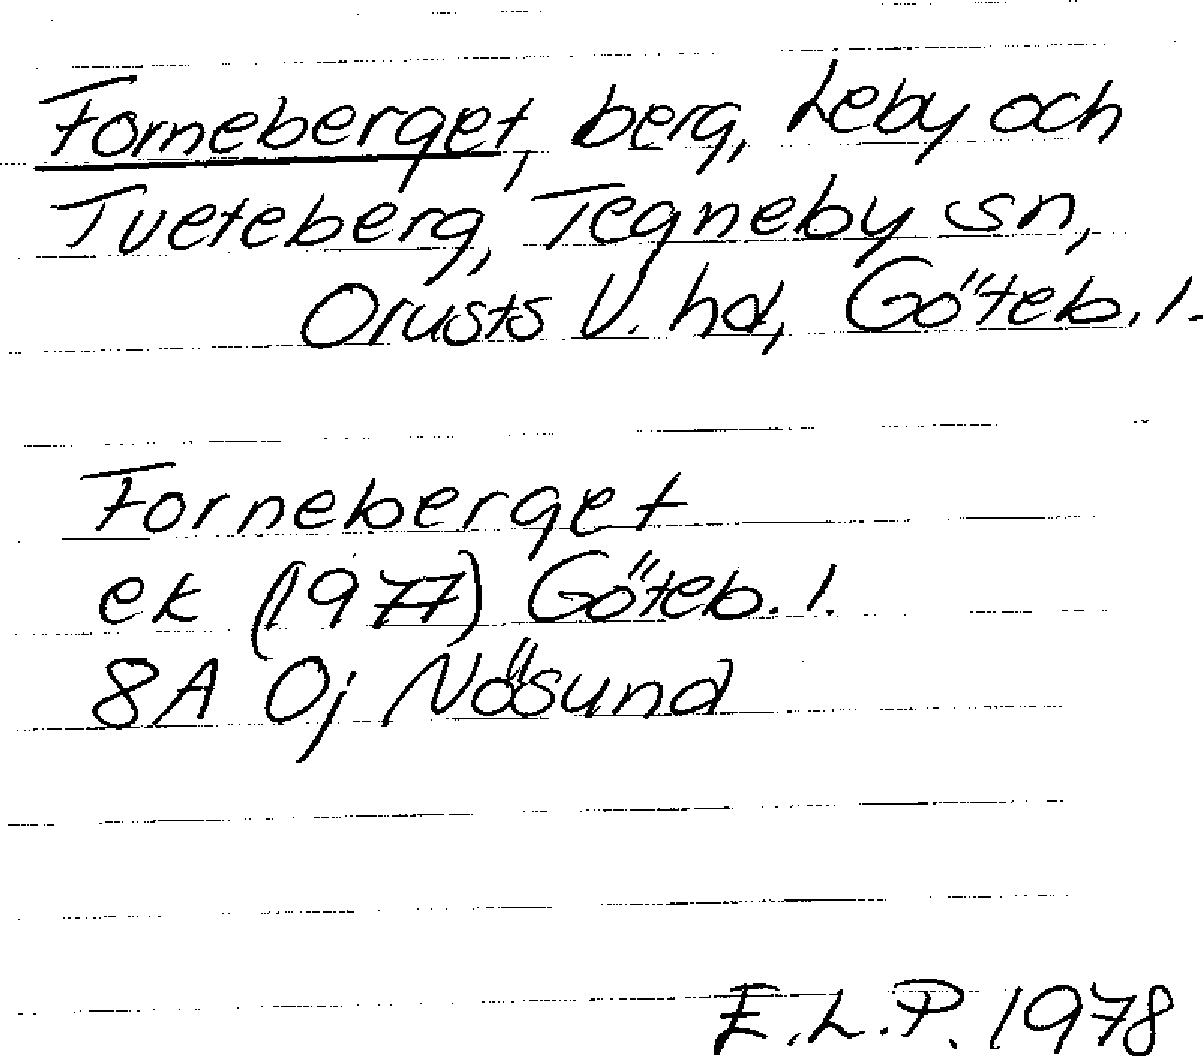 Forneberget, berg, Leby och
Tveteberg, Tegneby sn,
Orusts V. hd, Göteb. l.
Forneberget
ek (1977) Göteb. l.
8A 0j Nösund
E.L.P. 1978